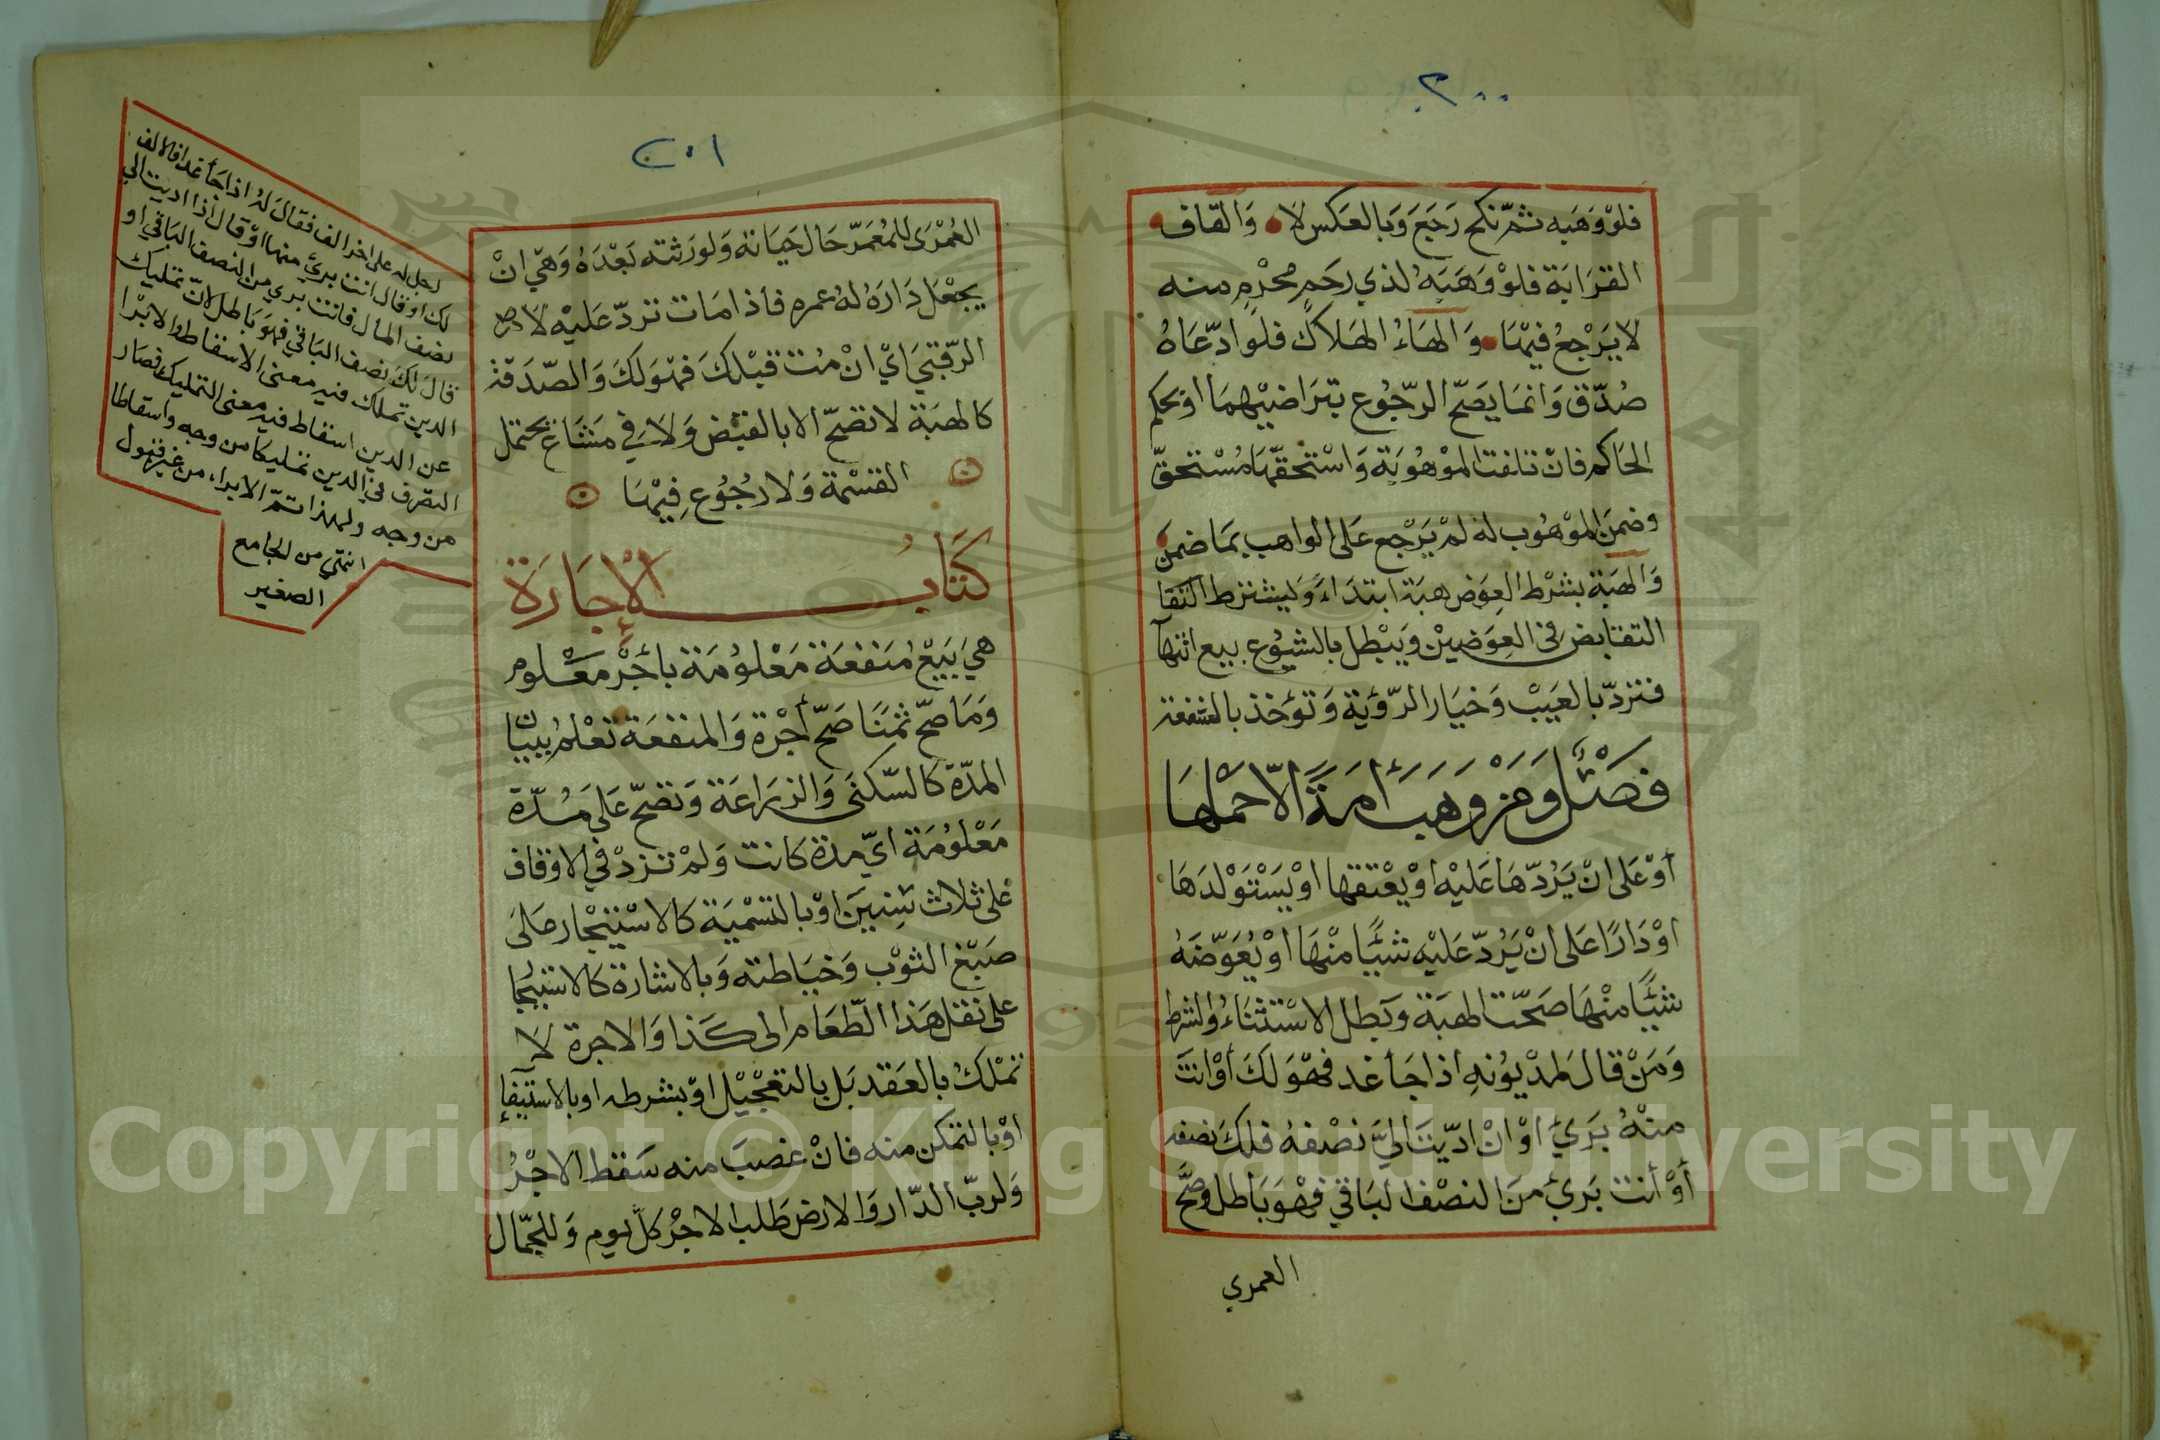 ٢٠٠
فلو وهبه ثم نكح رجع وبالعكس لا والقاف
القرابة فلو وهبه لذي رحم محرم منه
لا يرجع فيها والهاء الهلاك فلو ادعاه
صدق وانما يصح الرجوع بتراضيهما او بحكم
الحاكم فان تلفت الموهوبة واستحقها مستحق
وضمن الموهوب له لم يرجع على الواهب بما ضمن
والهبة بشرط العوض هبة ابتداء ويشترط التقا
التقابض في العوضين ويبطل بالشيوع بيع انتهآ
فترد بالعيب وخيار الرؤية وتؤخذ بالشفعة
فصل ومن وهب أمة الا حملها
أو على ان يردها عليه او يعتقها او يستولدها
او دارا على ان يرد عليه شيئا منها او يعوضه
شيئا منها صحت الهبة وبطل الاستثناء والشرط
ومن قال لمديونه اذا جآ غد فهو لك أو انت
منه بريء او ان اديت الي نصفه فلك نصفه
أو أنت بريء من النصف الباقي فهو باطل وصح
العمري
٢٠١
العمرى للمعمر حال حياته ولورثته بعده وهي ان
يجعل داره له عمره فاذا مات ترد عليه لا
الرقبى اي ان مت قبلك فهو لك والصدقة
كالهبة لا تصح الا بالقبض ولا في مشاع يحتمل
القسمة ولا رجوع فيها
كتاب الإجارة
هي بيع منفعة معلومة باجر معلوم
وما صح ثمنا صح أجرة والمنفعة تعلم ببيان
المدة كالسكنى والزراعة وتصح على مدة
معلومة اي مدة كانت ولم تزد في الاوقاف
على ثلاث سنين او بالتسمية كالاستيجار على
صبغ الثوب وخياطته وبالاشارة كالاستيجا
على نقل هذا الطعام الى كذا والاجرة لا
تملك بالعقد بل بالتعجيل او بشرطه او بالاستيفا
او بالتمكن منه فان غصب منه سقط الاجر
ولرب الدار والارض طلب الاجر كل يوم وللجمال
رجل له على اخر الف فقال له اذا جآ غد فالالف
لك او قال انت بريء منها او قال اذا اديت الي
نصف المال فانت بري من النصف الباقي او
قال لك نصف الباقي فهو باطل لان تمليك
الدين تملك فيه معنى الاسقاط والابرا
عن الدين اسقاط فيه معنى التمليك فصار
التصرف في الدين تمليكا من وجه واسقاطا
من وجه ولهذا تم الابراء من غير قبول
انتهى من الجامع
الصغير
Copyright © King Saud University